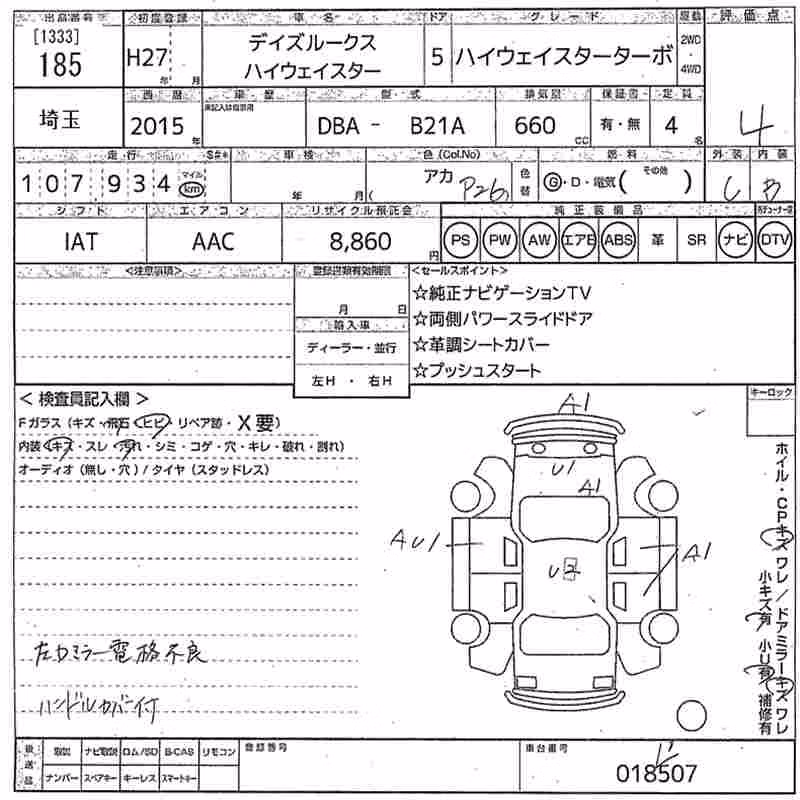 出品番号 初度登録 車名 ドア グレード 駆動 評価点
[1333]
185 H27 年 月 デイズルークス 5 ハイウェイスターターボ 2WD・4WD
ハイウェイスター
埼玉 西暦 車歴 型式 排気量 保証書 定員 4
2015年 DBA - B21A 660 CC 有・無 4名
走行 車検 色(Col.No) 燃料 外装 内装
107934 マイル km 年 月 アカ P26 色替 G・D・電気( その他 ) C B
シフト エアコン リサイクル預託金 純正装備品
IAT AAC 8,860円 PS PW AW エアB ABS 革 SR ナビ DTV
<注意事項> 登録書類有効期限 <セールスポイント>
月 日 ☆純正ナビゲーションTV
輸入車 ☆両側パワースライドドア
ディーラー・並行 ☆革調シートカバー
左H・右H ☆プッシュスタート
<検査員記入欄> キーロック
Fガラス(キズ・飛石・ヒビ・リペア跡・X要)
内装(キズ・スレ・汚れ・シミ・コゲ・穴・キレ・破れ・割れ)
オーディオ(無し・穴)/タイヤ(スタッドレス)
A1
U1
A1
AU1
A1
U2
ホイル・CPキズワレ/ドアミラーキズワレ
小キズ有 小U有 補修有
左ドミラー電格不良
ハンドルカバー付
後送品 取説 ナビ取説 ロム/SD B-CAS リモコン 登録番号 車台番号
ナンバー スペアキー キーレス スマートキー 018507